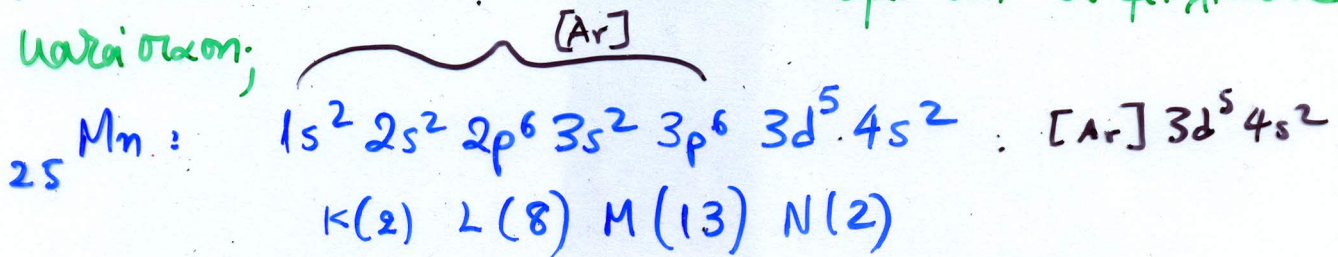 κατάσταση;
[Ar]
₂₅Mn : 1s² 2s² 2p⁶ 3s² 3p⁶ 3d⁵ 4s² : [Ar] 3d⁵ 4s²
K(2) L(8) M(13) N(2)